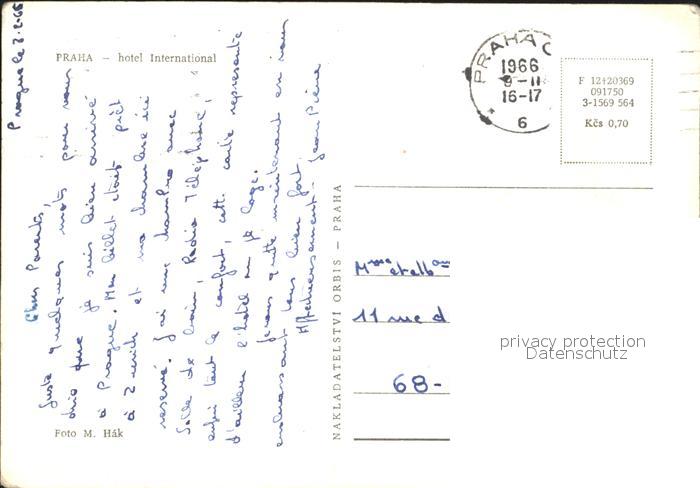 PRAHA – hotel International
Prague le 2.2.66
Chers Parents,
Juste quelques mots pour vous
dire que je suis bien arrivé
à Prague. Mon billet était prêt
à Zurich et ma chambre ici
reservé. J'ai une chambre avec
Salle de bain, Radio Téléphone,
enfin tout le confort, cette carte represente
d'ailleur l'hotel ou je loge.
Je vous quitte maintenant en vous
embrassant tous bien fort.
Affectueusement Jean Pierre
Foto M. Hák
NAKLADATELSTVÍ ORBIS – PRAHA
PRAHA
1966
9-11
16-17
6
F 12+20369
091750
3-1569 564
Kčs 0,70
Mme et
11 rue d
68-
privacy protection
Datenschutz